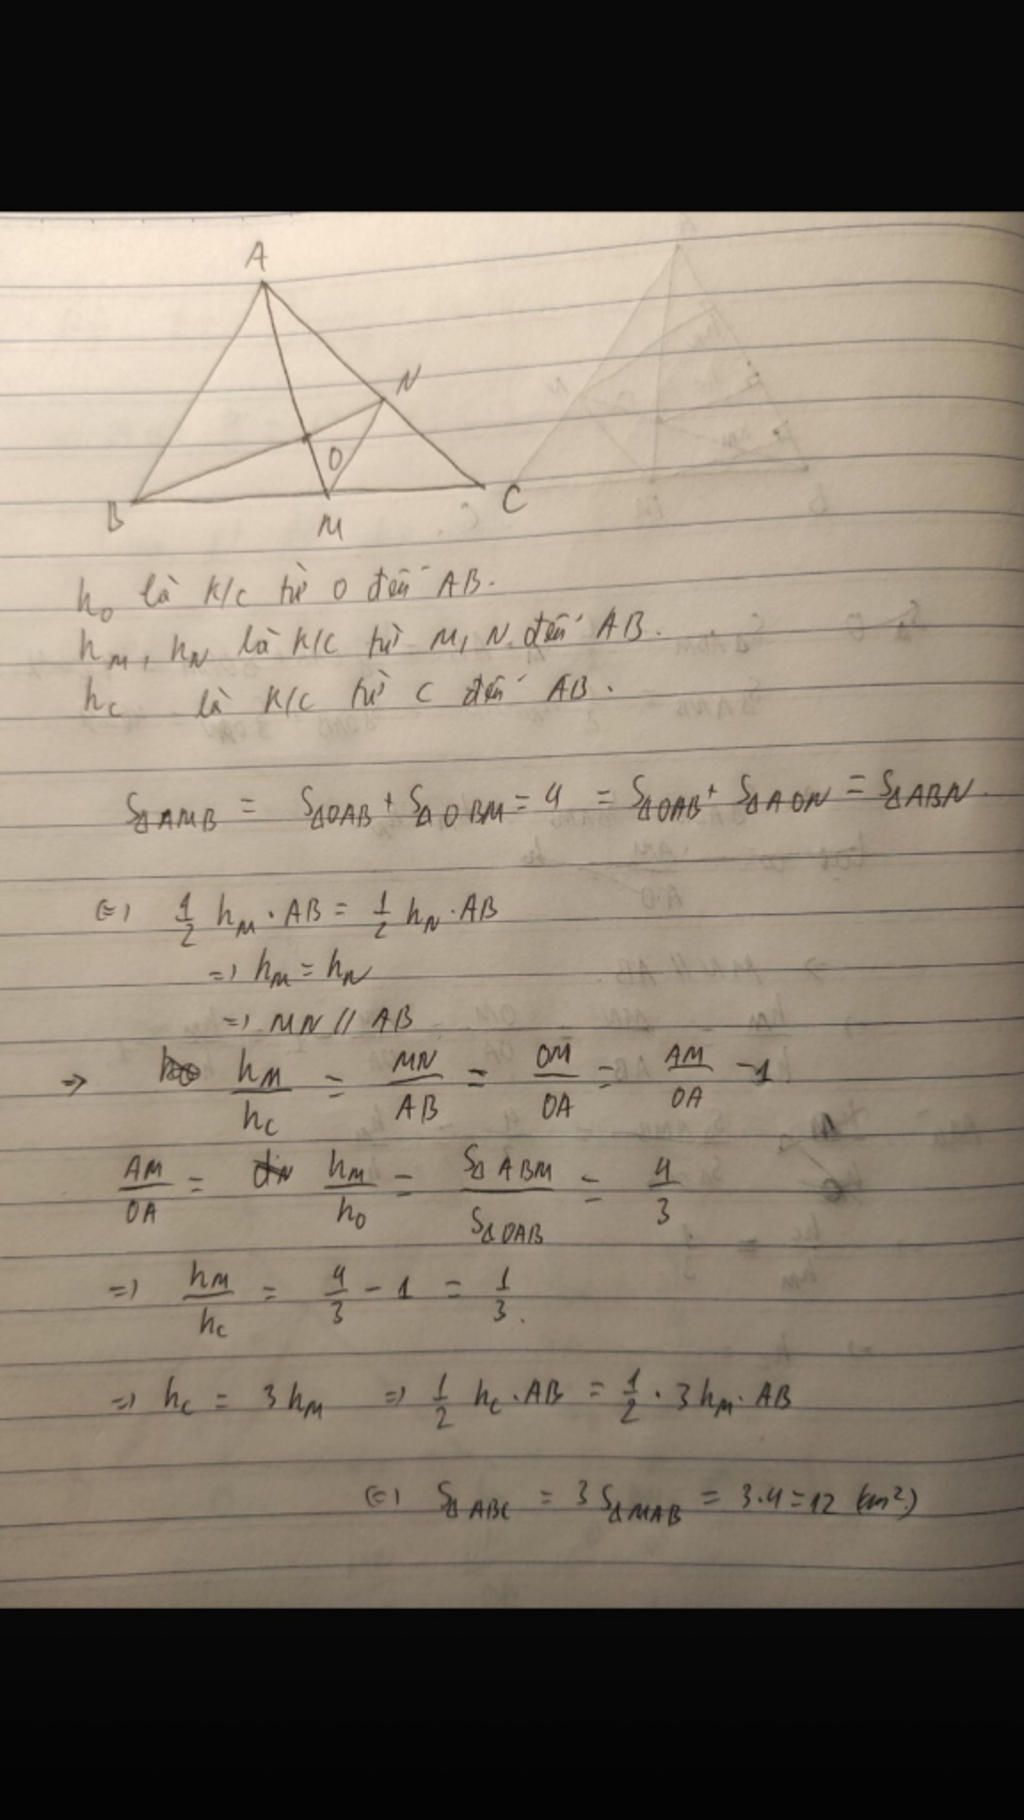 A
N
O
B
M
C
h₀ là k/c từ O đến AB.
h_M, h_N là k/c từ M, N đến AB.
h_C là k/c từ C đến AB.
S_ΔAMB = S_ΔOAB + S_ΔOBM = 4 = S_ΔOAB + S_ΔAON = S_ΔABN.
(=) 1/2 h_M . AB = 1/2 h_N . AB
=> h_M = h_N
=> MN // AB
=> h_M/h_C = MN/AB = OM/OA = AM/OA - 1
AM/OA = h_M/h₀ = S_ΔABM/S_ΔOAB = 4/3
=> h_M/h_C = 4/3 - 1 = 1/3.
=> h_C = 3h_M => 1/2 h_C . AB = 1/2 . 3h_M . AB
(=) S_ΔABC = 3S_ΔMAB = 3.4 = 12 (cm²)